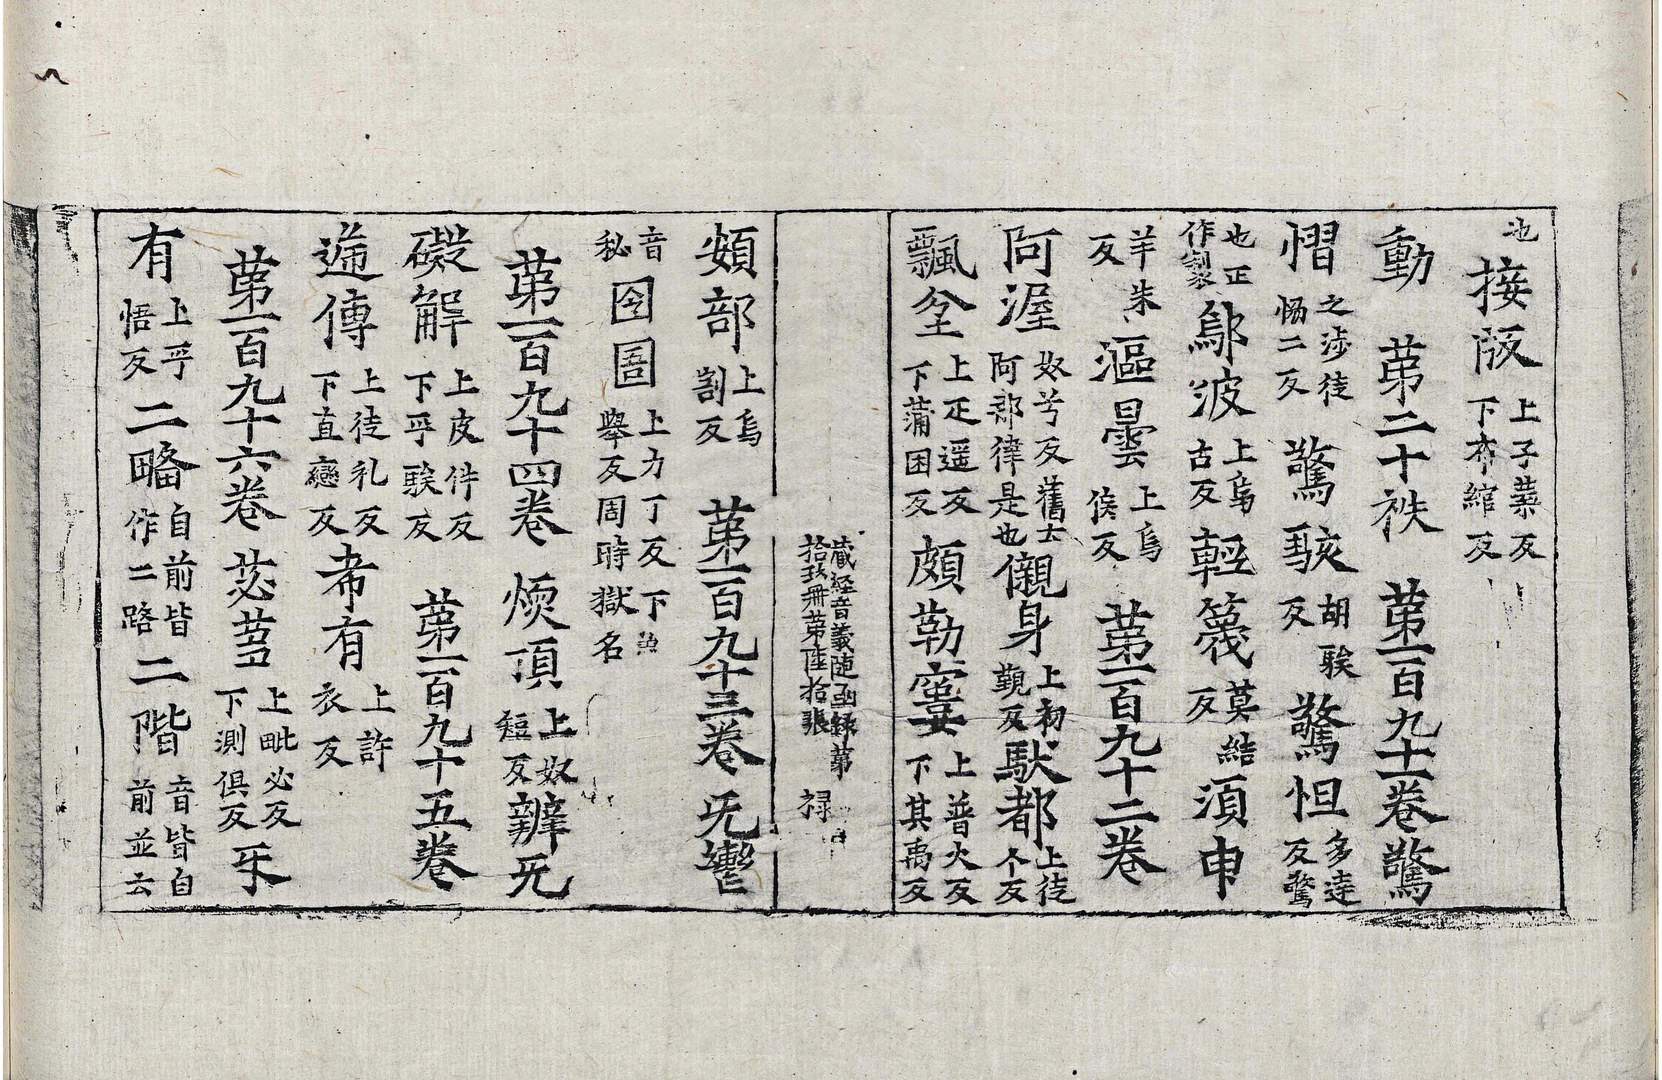 也接阪上子葉反下布綰反
動 苐二十袟 苐一百九十一卷驚
慴之涉徒惵二反驚駭胡駭反驚怛多達反驚
也正作製鄔波上烏古反輕篾莫結反湏申
羊朱反漚曇上烏侯反 苐一百九十二卷
阿渥奴兮反舊云阿那律是也儭身上初覲反馱都上徒个反
飄坌上疋遥反下蒲困反頗勒窶上普火反下其禹反
蔵経音義随函録苐
拾玖冊苐陸拾張 禄
頞部上烏割反 苐一百九十三卷旡鬱
音秘囹圄上力丁反下魚舉反周時獄名
苐一百九十四卷煗頂上奴短反辦旡
礙解上皮件反下乎駭反 苐一百九十五卷
遞傳上徒礼反下直戀反希有上許衣反
苐一百九十六卷苾蒭上毗必反下測俱反乐
有上乎悟反二略自前皆作二路二階音皆自前並云